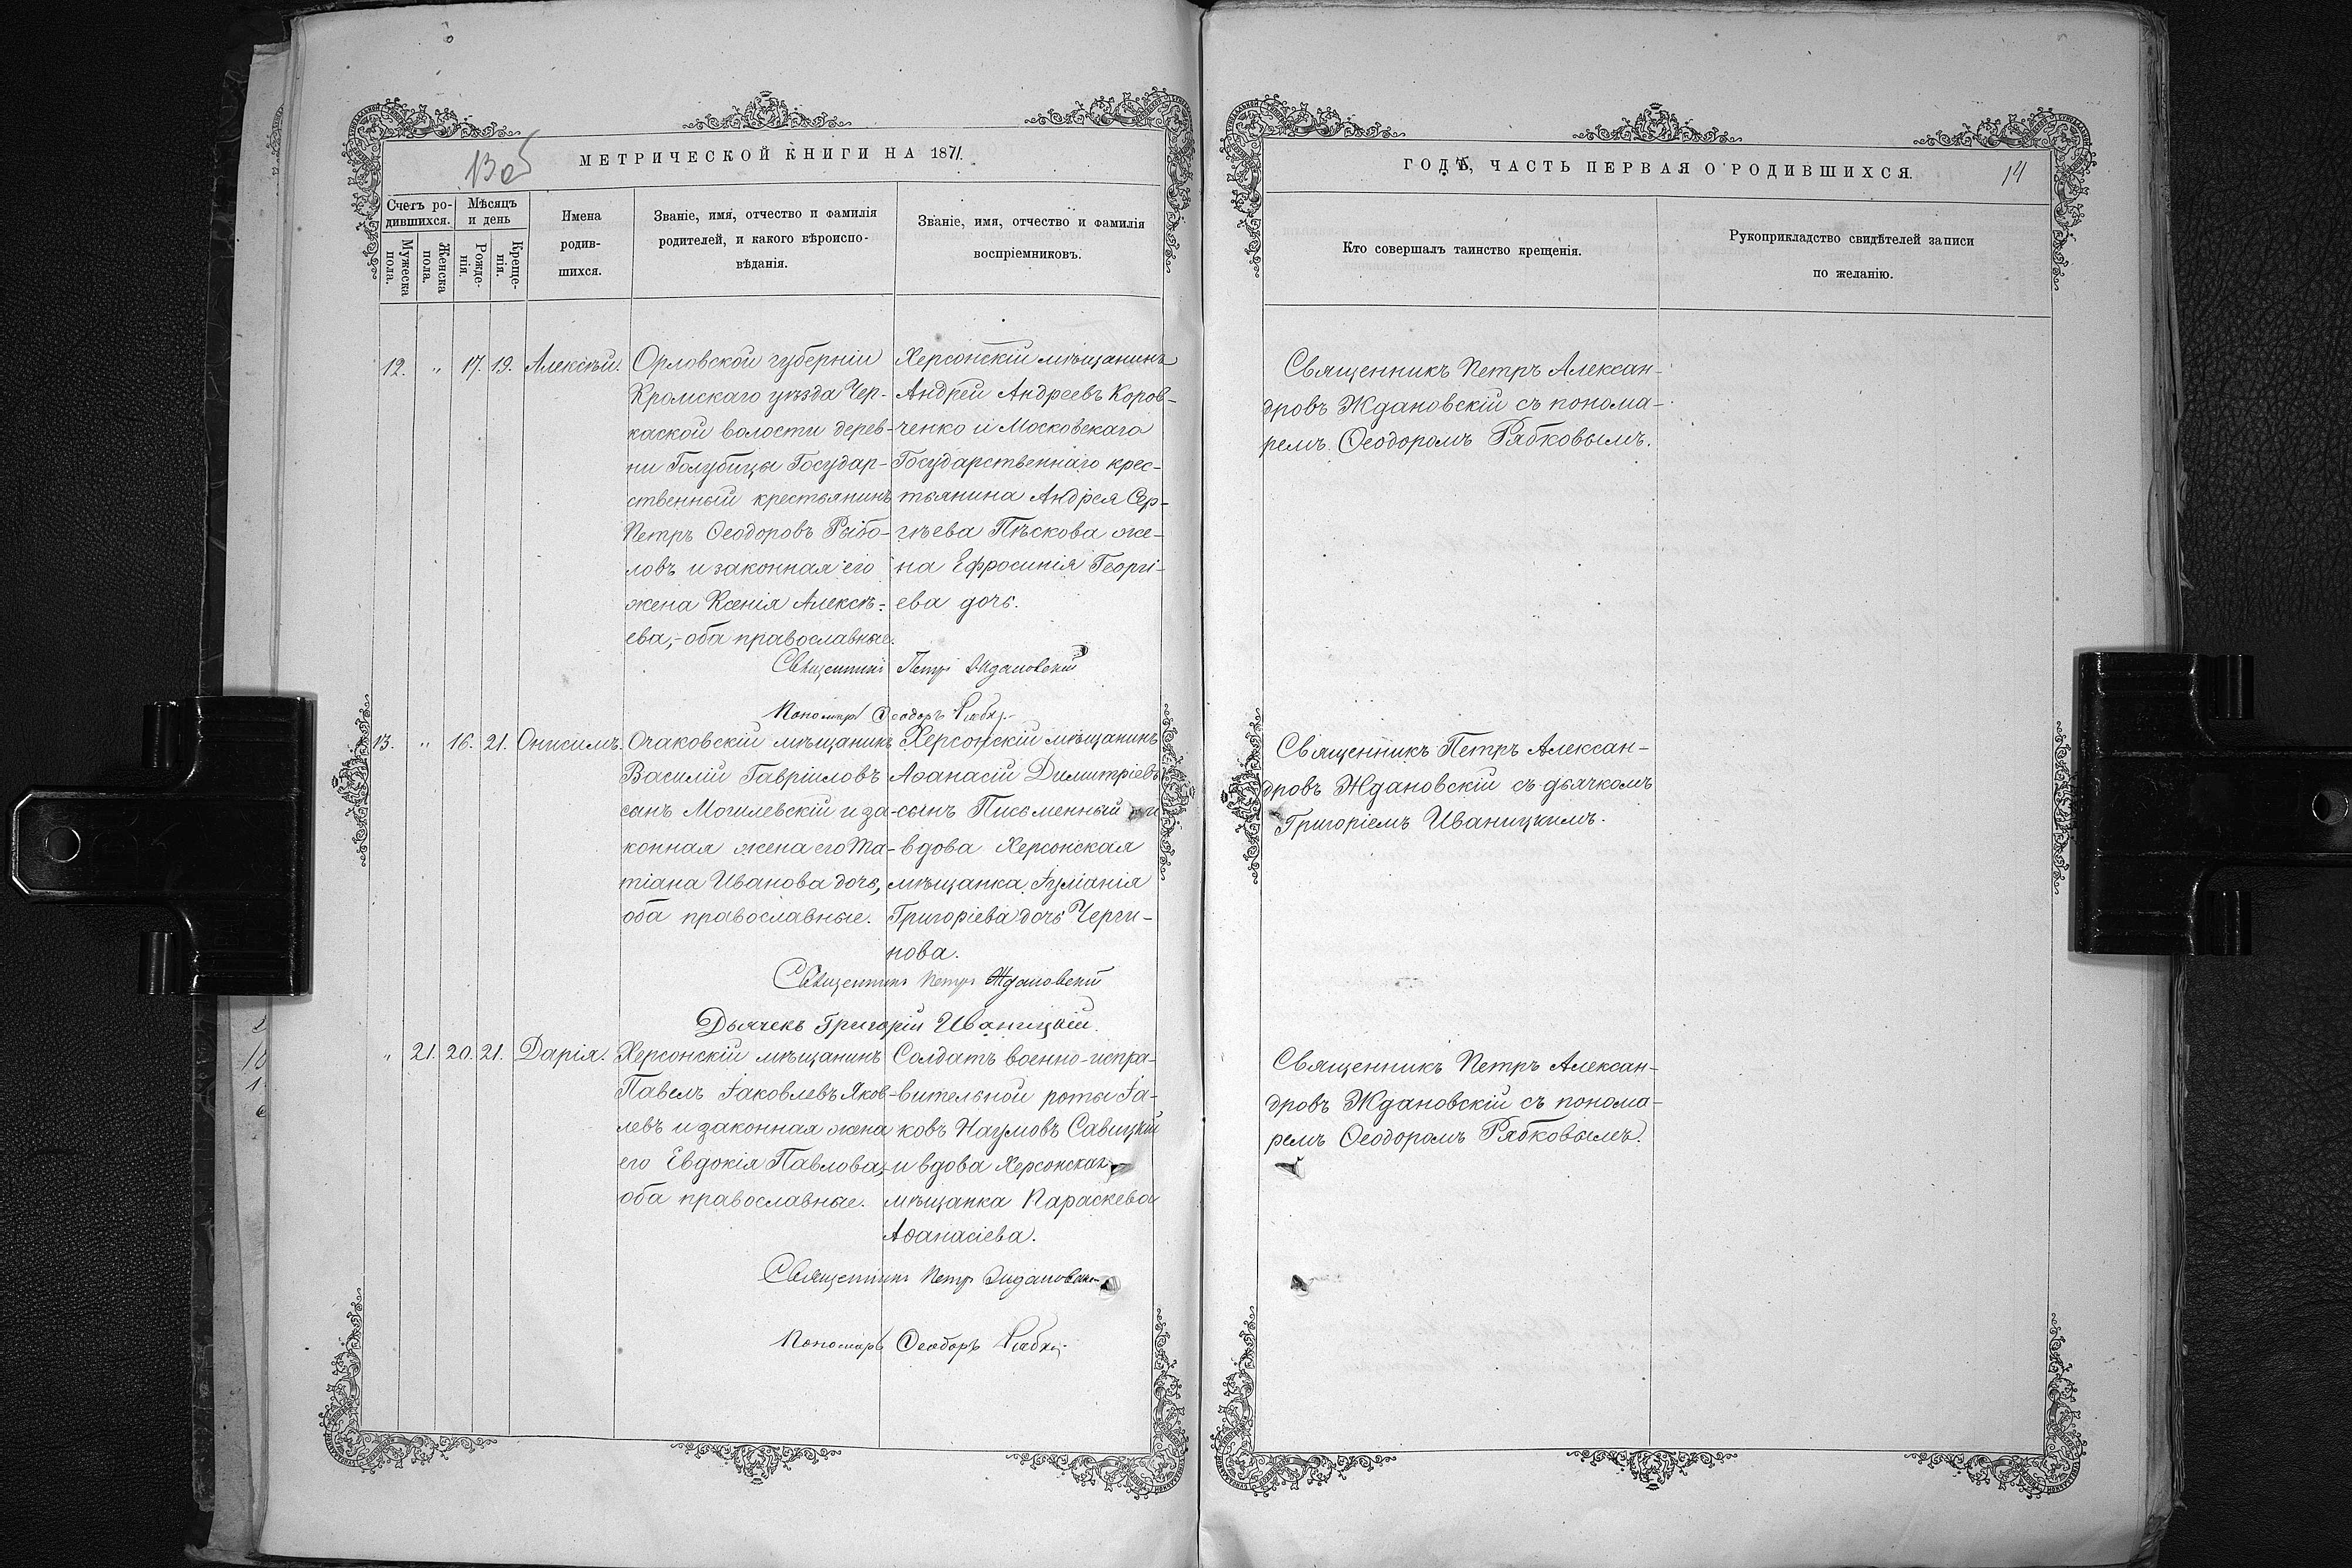 13 об
МЕТРИЧЕСКОЙ КНИГИ НА 1871.
Счетъ ро-
дившихся.
Мужеска
пола.
Женска
пола.
Мѣсяцъ
и день
Рожде-
нія.
Креще-
нія.
Имена
родив-
шихся.
Званіе, имя, отчество и фамилія
родителей, и какого вѣроиспо-
вѣданія.
Званіе, имя, отчество и фамилія
воспріемниковъ.
12. " 17. 19. Алексѣй.
Орловской губерніи
Кромскаго уѣзда Чер-
каской волости дерев-
ни Голубицы Государ-
ственный крестьянинъ
Петръ Ѳеодоровъ Рыбо-
ловъ и законная его
жена Ксенія Алексѣ-
ева,-оба православные.
Херсонскій мѣщанинъ
Андрей Андреевъ Коров-
ченко и Московскаго
Государственнаго крес-
тьянина Андрея Сер-
гѣева Пѣскова же-
на Ефросинія Георгі-
ева дочь.
Священникъ Петръ Ждановскій
Пономарь Ѳеодоръ
13. " 16. 21. Онисимъ.
Очаковскій мѣщанинъ
Василій Гавріиловъ
сынъ Могилевскій и за-
конная жена его Та-
тіана Иванова дочь,
оба православные.
Херсонскій мѣщанинъ
Аѳанасій Димитріевъ
сынъ Письменный и
вдова Херсонская
мѣщанка Іуліанія
Григоріева дочь Черги-
нова.
Священникъ Петръ Ждановскій
Дьячекъ Григорій Иваницкій.
" 21. 20. 21. Дарія.
Херсонскій мѣщанинъ
Павелъ Іаковлевъ Яков-
левъ и законная жена
его Евдокія Павлова,
оба православные.
Солдатъ военно-испра-
вительной роты Іа-
ковъ Наумовъ Савицкій
и вдова Херсонская
мѣщанка Параскева
Аѳанасіева.
Священникъ Петръ Ждановскій
Пономарь Ѳеодоръ
ГОДЪ, ЧАСТЬ ПЕРВАЯ О РОДИВШИХСЯ.
14
Кто совершалъ таинство крещенія.
Рукоприкладство свидѣтелей записи
по желанію.
Священникъ Петръ Алексан-
дровъ Ждановскій съ понома-
ремъ Ѳеодоромъ Рябковымъ.
Священникъ Петръ Алексан-
дровъ Ждановскій съ дьячкомъ
Григоріемъ Иваницкимъ.
Священникъ Петръ Алексан-
дровъ Ждановскій съ понома-
ремъ Ѳеодоромъ Рябковымъ.